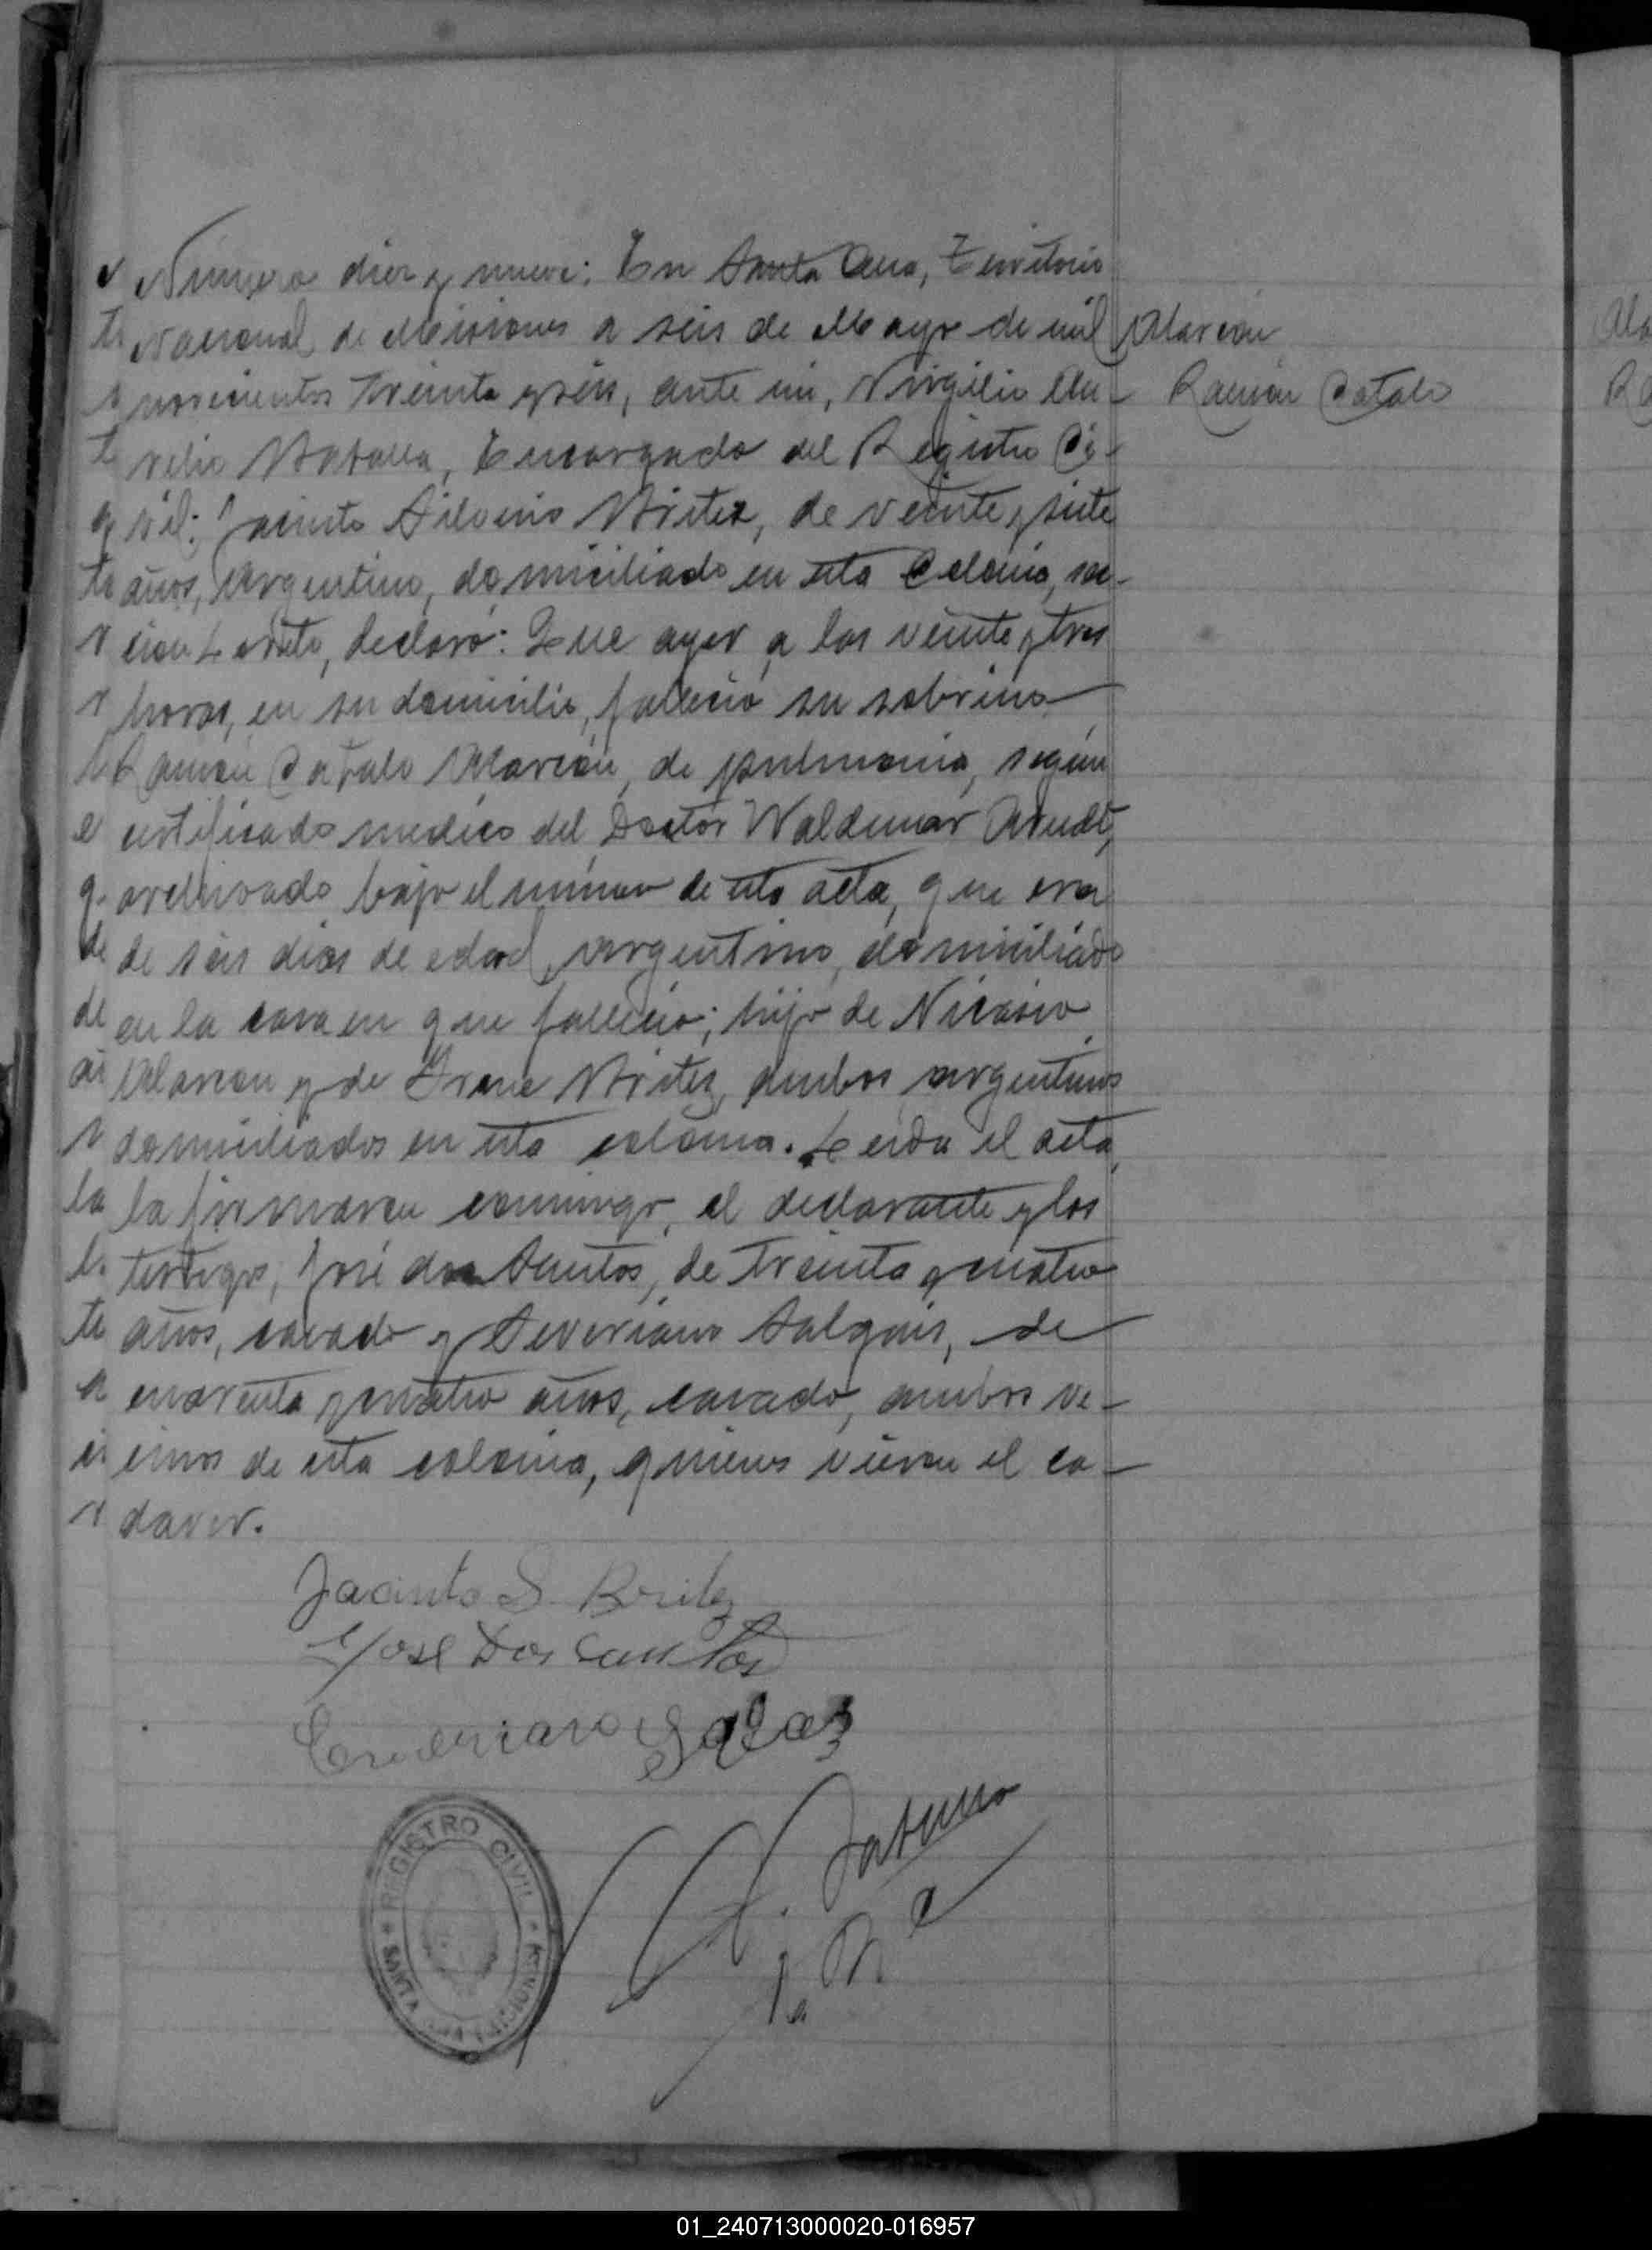 Número diez y nueve: En Santa Ana, Territorio
Nacional de Misiones a seis de Mayo de mil
novecientos treinta y seis, ante mi, Virgilio Au-
relio Batalla, Encargado del Registro Ci-
vil; Jacinto Silverio Britez, de veinte y siete
años, Argentino, domiciliado en esta Colonia, sec-
cion Loreto, declaró: Que ayer a las veinte y tres
horas, en su domicilio, falleció su sobrino
Ramón Catalo Alarcón, de pulmonia, según
certificado medico del Doctor Waldemar Arndt,
archivado bajo el número de esta acta, que era
de seis dias de edad, argentino, domiciliado
en la casa en que falleció; hijo de Nicasio
Alarcon y de Irene Britez, ambos argentinos
domiciliados en esta colonia. Leida el acta,
la firmaron conmigo, el declarante y los
testigos, José dos Santos, de treinta y cuatro
años, casado y Severiano de
cuarenta y cuatro años, casado, ambos ve-
cinos de esta colonia, quienes vieron el ca-
daver.
Alarcón
Ramón Catalo
Jacinto S. Britez
José Dos Santos
REGISTRO CIVIL
SANTA ANA (MISIONES)
01_240713000020-016957